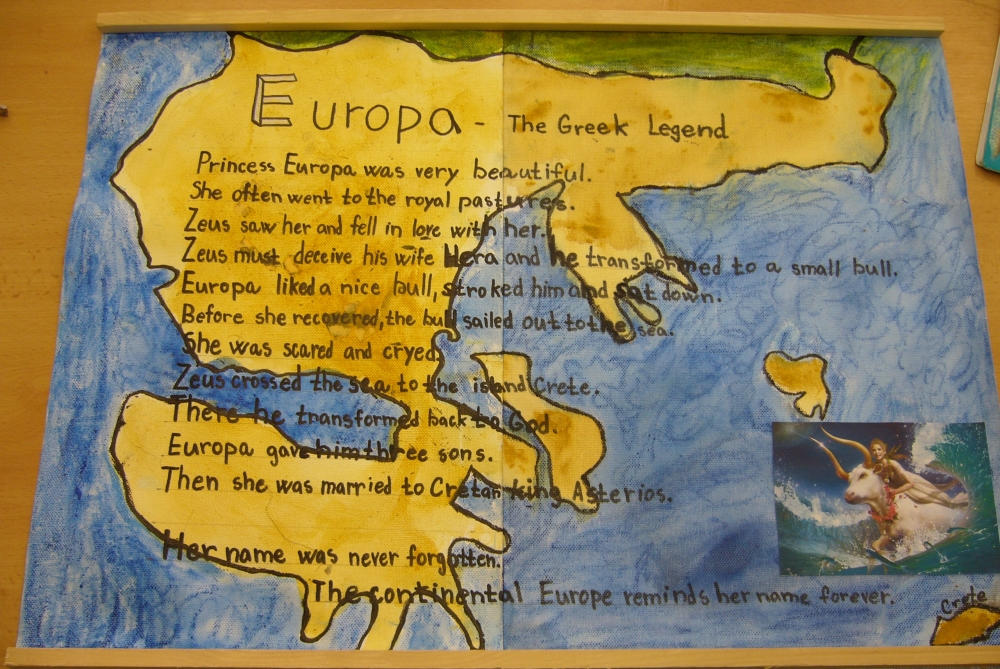 Europa - The Greek Legend
Princess Europa was very beautiful.
She often went to the royal pastures.
Zeus saw her and fell in love with her.
Zeus must deceive his wife Hera and he transformed to a small bull.
Europa liked a nice bull, stroked him and sat down.
Before she recovered, the bull sailed out to the sea.
She was scared and cryed.
Zeus crossed the sea to the island Crete.
There he transformed back to God.
Europa gave him three sons.
Then she was married to Cretan king Asterios.
Her name was never forgotten.
The continental Europe reminds her name forever.
Crete